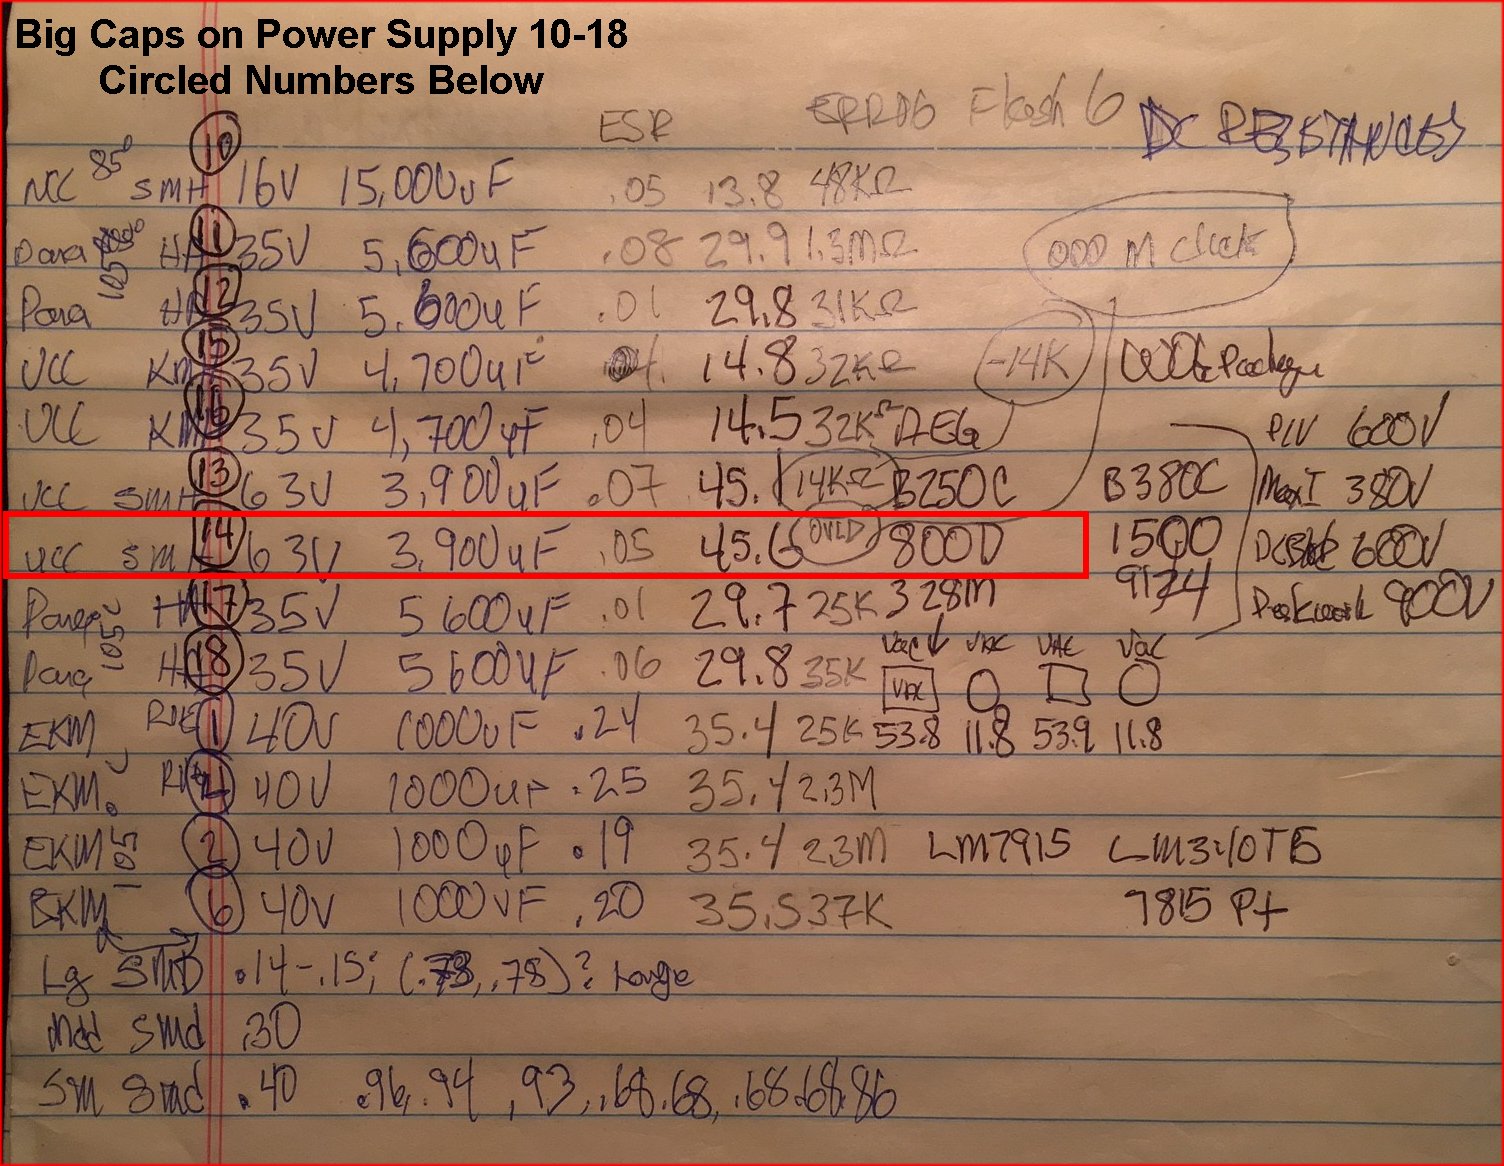 Big Caps on Power Supply 10-18
Circled Numbers Below
ESR ERR06 Flash 6 DC RESISTANCES
10
NCC 85° SMH 16V 15,000uF .05 13.8 48KΩ
11
Pana 105° HA 35V 5,600uF .08 29.9 1.3MΩ 000 M Check
12
Pana HA 35V 5,600uF .01 29.8 31KΩ
15
UCC KM 35V 4,700uF 14.8 32KΩ -14K Package
16
UCC KM 35V 4,700uF .04 14.5 32KΩ AEG PIV 600V
13
UCC SMH 63V 3,900uF .07 45.1 14KΩ B250C B380C Max I 380V
14
UCC SM 63V 3,900uF .05 45.6 OVLD 800D 1500 DC 600V
17
Pana 105° HA 35V 5600uF .01 29.7 25K 328M 9124 Peak 900V
18
Pana HA 35V 5600uF .06 29.8 35K VAC VAC VAC VAC
VAC
EKM 1 40V 1000uF .24 35.4 25K 53.8 11.8 53.9 11.8
EKM 40V 1000uF .25 35.4 2.3M
EKM 105 2 40V 1000uF .19 35.4 2.3M LM7915 LM340T5
EKM 6 40V 1000uF .20 35.5 37K 7815 P+
Lg SMD .14-.15; (.78, .78)? range
smd .30
Sm Smd .40 .96, .94, .93, .68 .68, .68 .68 .86